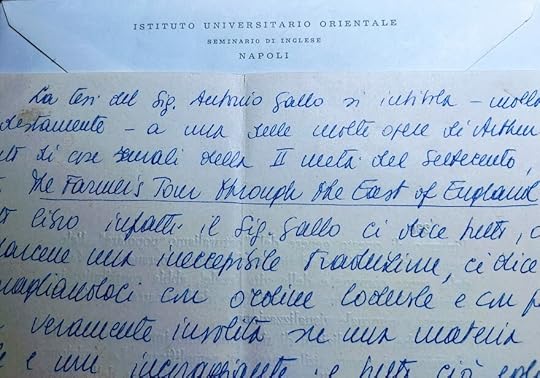 ISTITUTO UNIVERSITARIO ORIENTALE
SEMINARIO DI INGLESE
NAPOLI
La tesi del Sig. Antonio Gallo si intitola – molto
destamente – a una delle molte opere di Arthur
di cose rurali della II metà del Settecento,
The Farmer's Tour through the East of England
libro infatti il Sig. Gallo ci dice tutto,
una ineccepibile traduzione, ci dice
con ordine lodevole e con
veramente insolita in una materia
e tutto ciò